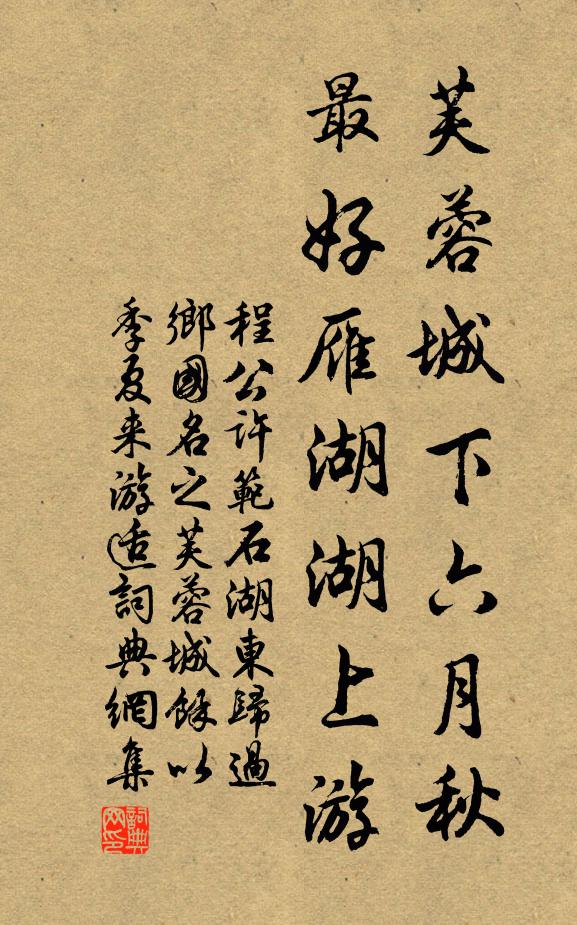 芙蓉城下六月秋
最好雁湖湖上游
程公许範石湖東歸過
鄉國名之芙蓉城餘以
季夏来游适詞典網集
詞典网印